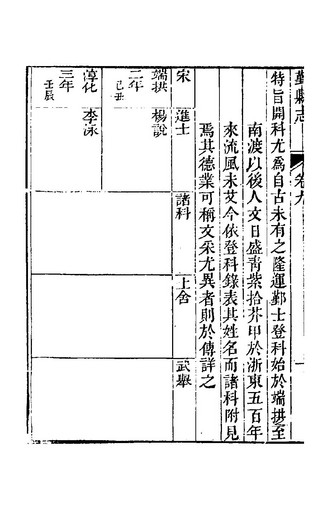 鄞縣志
卷九
一
特旨開科尤爲自古未有之隆運鄞士登科始於端拱至
南渡以後人文日盛靑紫拾芥甲於浙東五百年
來流風未艾今依登科錄表其姓名而諸科附見
焉其德業可稱文采尤異者則於傳詳之
宋
進士
諸科
上舍
武舉
端拱
二年
己丑
楊說
淳化
三年
壬辰
李泳